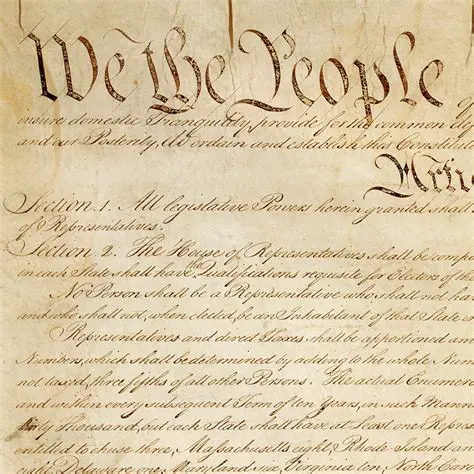 We the People
insure domestic Tranquility, provide for the common
and our Posterity, do ordain and establish this Constitut
Artic
Section. 1. All legislative Powers herein granted shall
of Representatives.
Section. 2. The House of Representatives shall be comp
in each State shall have the Qualifications requisite for Electors of the
No Person shall be a Representative who shall not ha
and who shall not, when elected, be an Inhabitant of that State in
Representatives and direct Taxes shall be apportioned am
Numbers, which shall be determined by adding to the whole Num
not taxed, three fifths of all other Persons. The actual Enumer
and within every subsequent Term of ten Years, in such Manner
thirty Thousand, but each State shall have at Least one Represen
entitled to chuse three, Massachusetts eight, Rhode Island an
eight, Delaware one, Maryland six, Virginia ten, North Caro